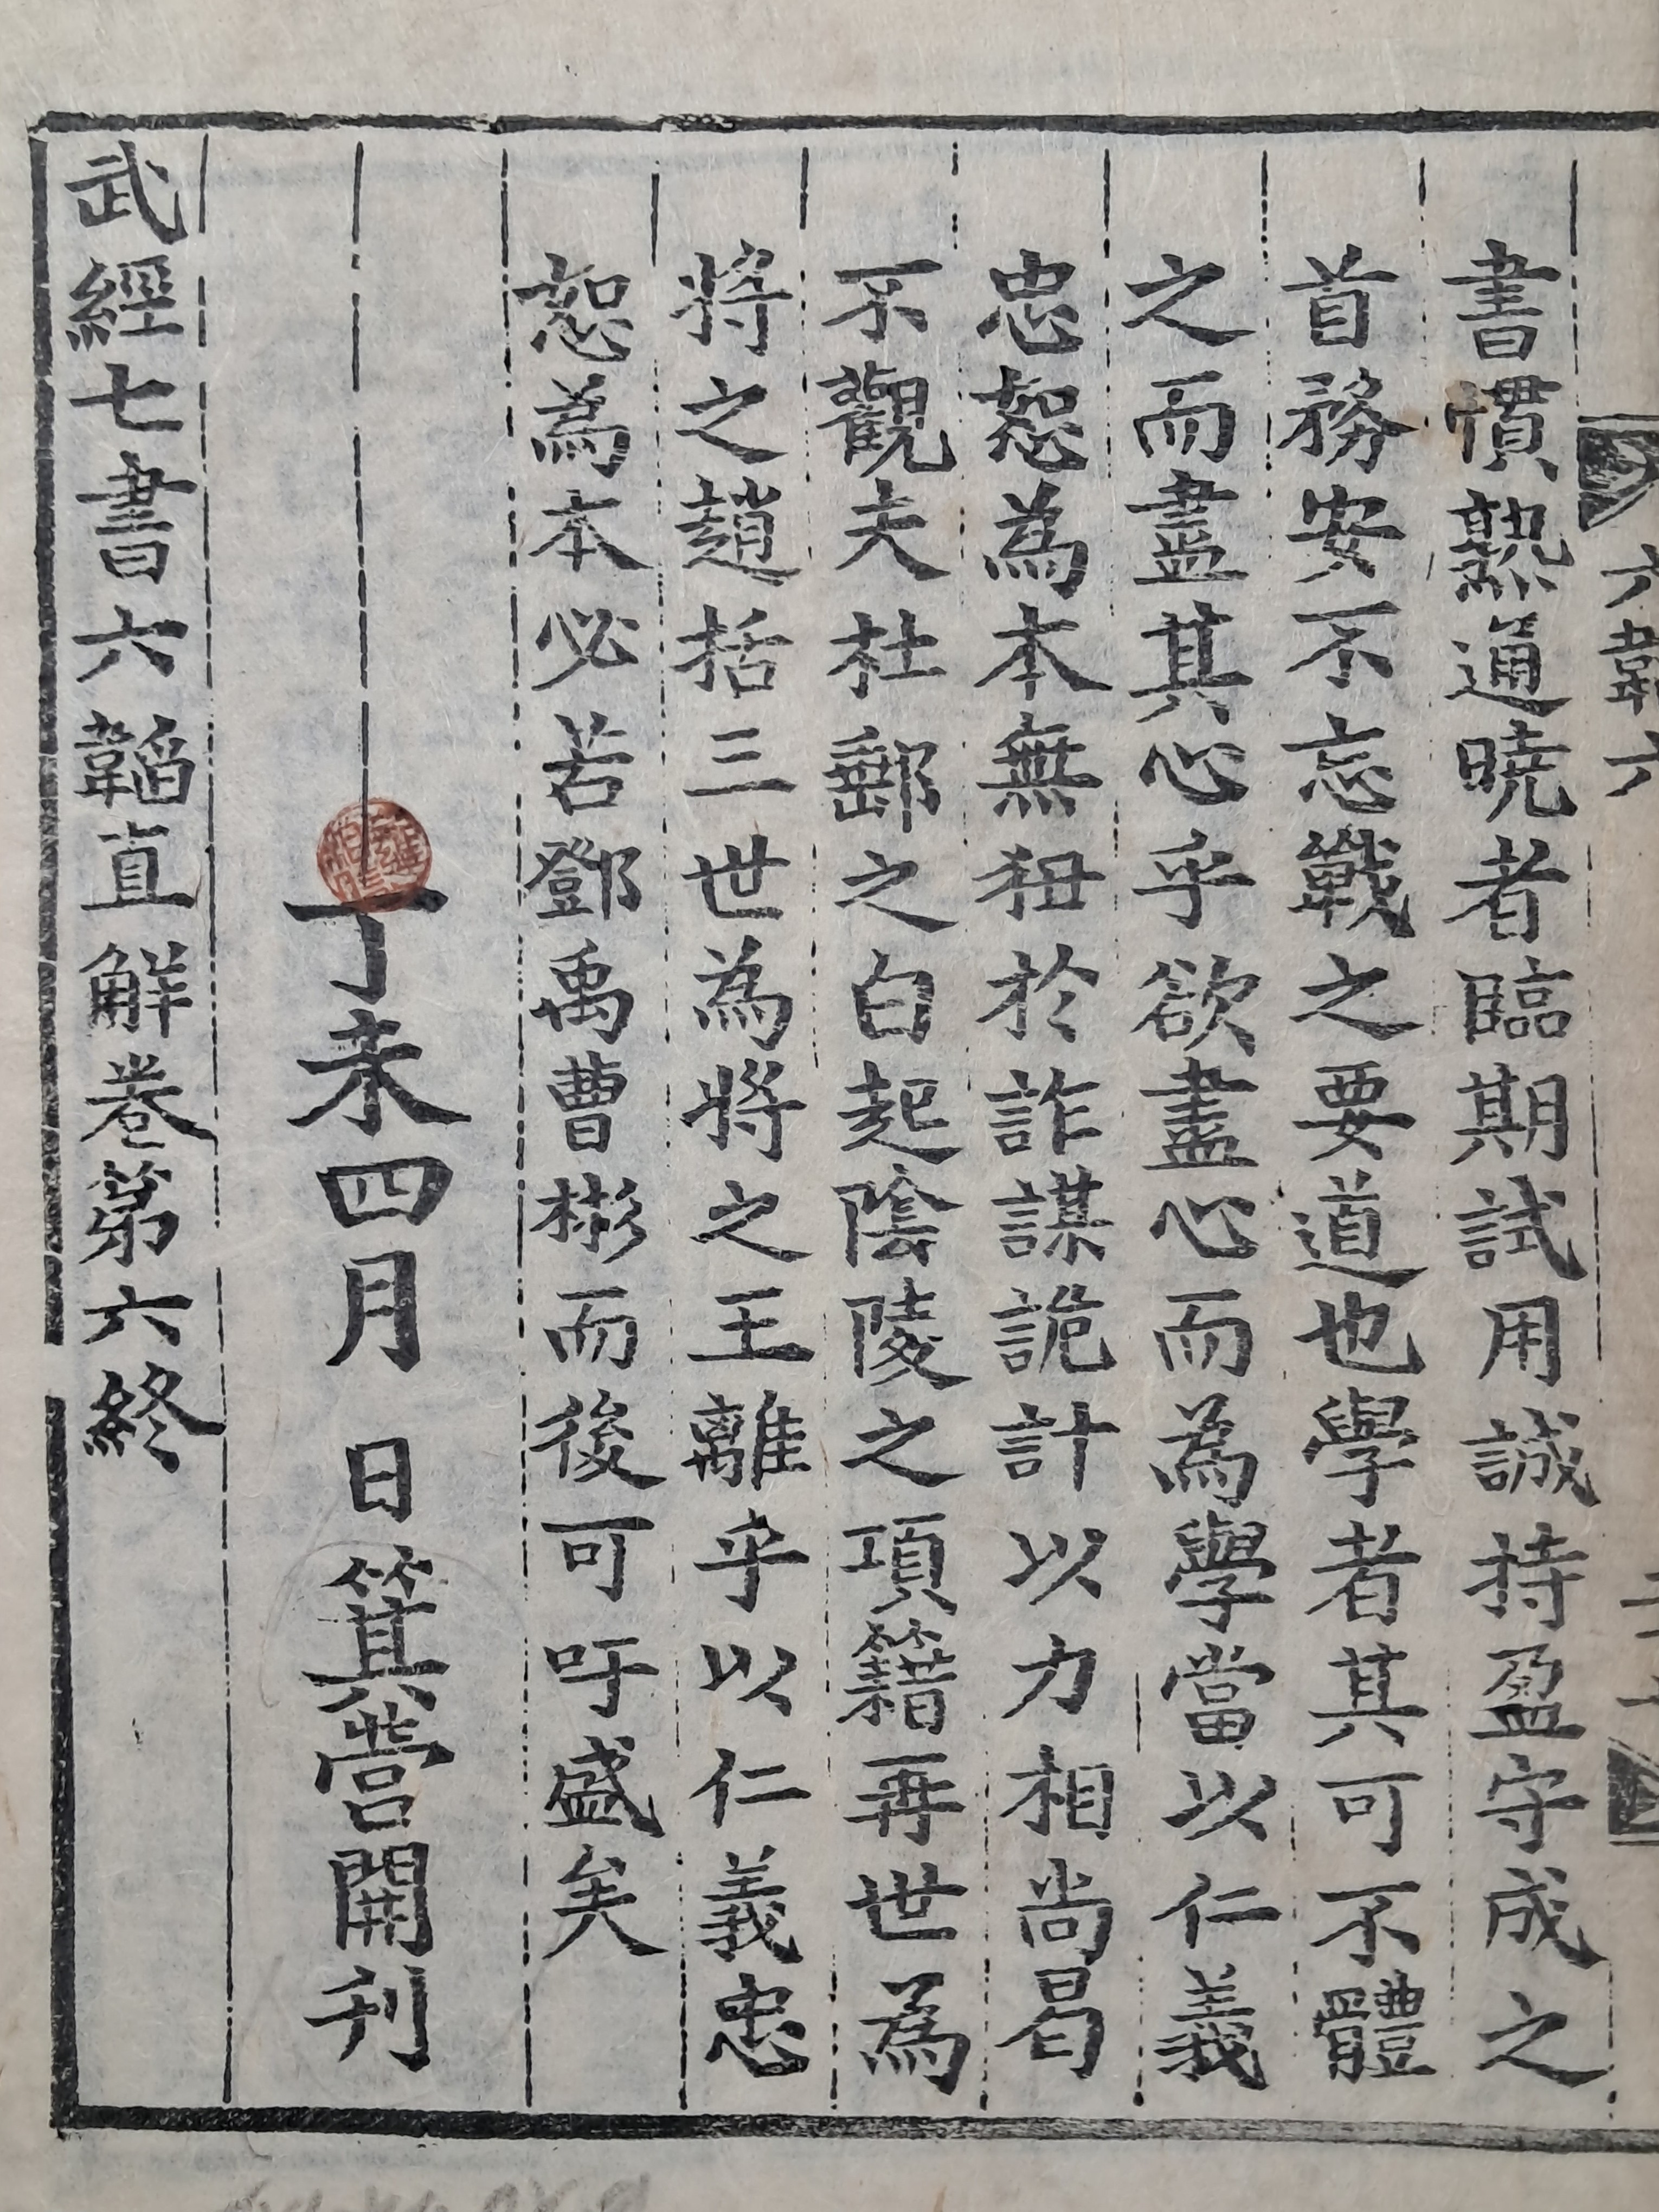 六韜六
書慣熟通曉者臨期試用誠持盈守成之
首務安不忘戰之要道也學者其可不體
之而盡其心乎欲盡心而為學當以仁義
忠恕為本無狃於詐謀詭計以力相尚曷
不觀夫杜郵之白起陰陵之項籍再世為
將之趙括三世為將之王離乎以仁義忠
恕為本必若鄧禹曹彬而後可吁盛矣
丁未四月 日箕營開刊
武經七書六韜直解卷第六終